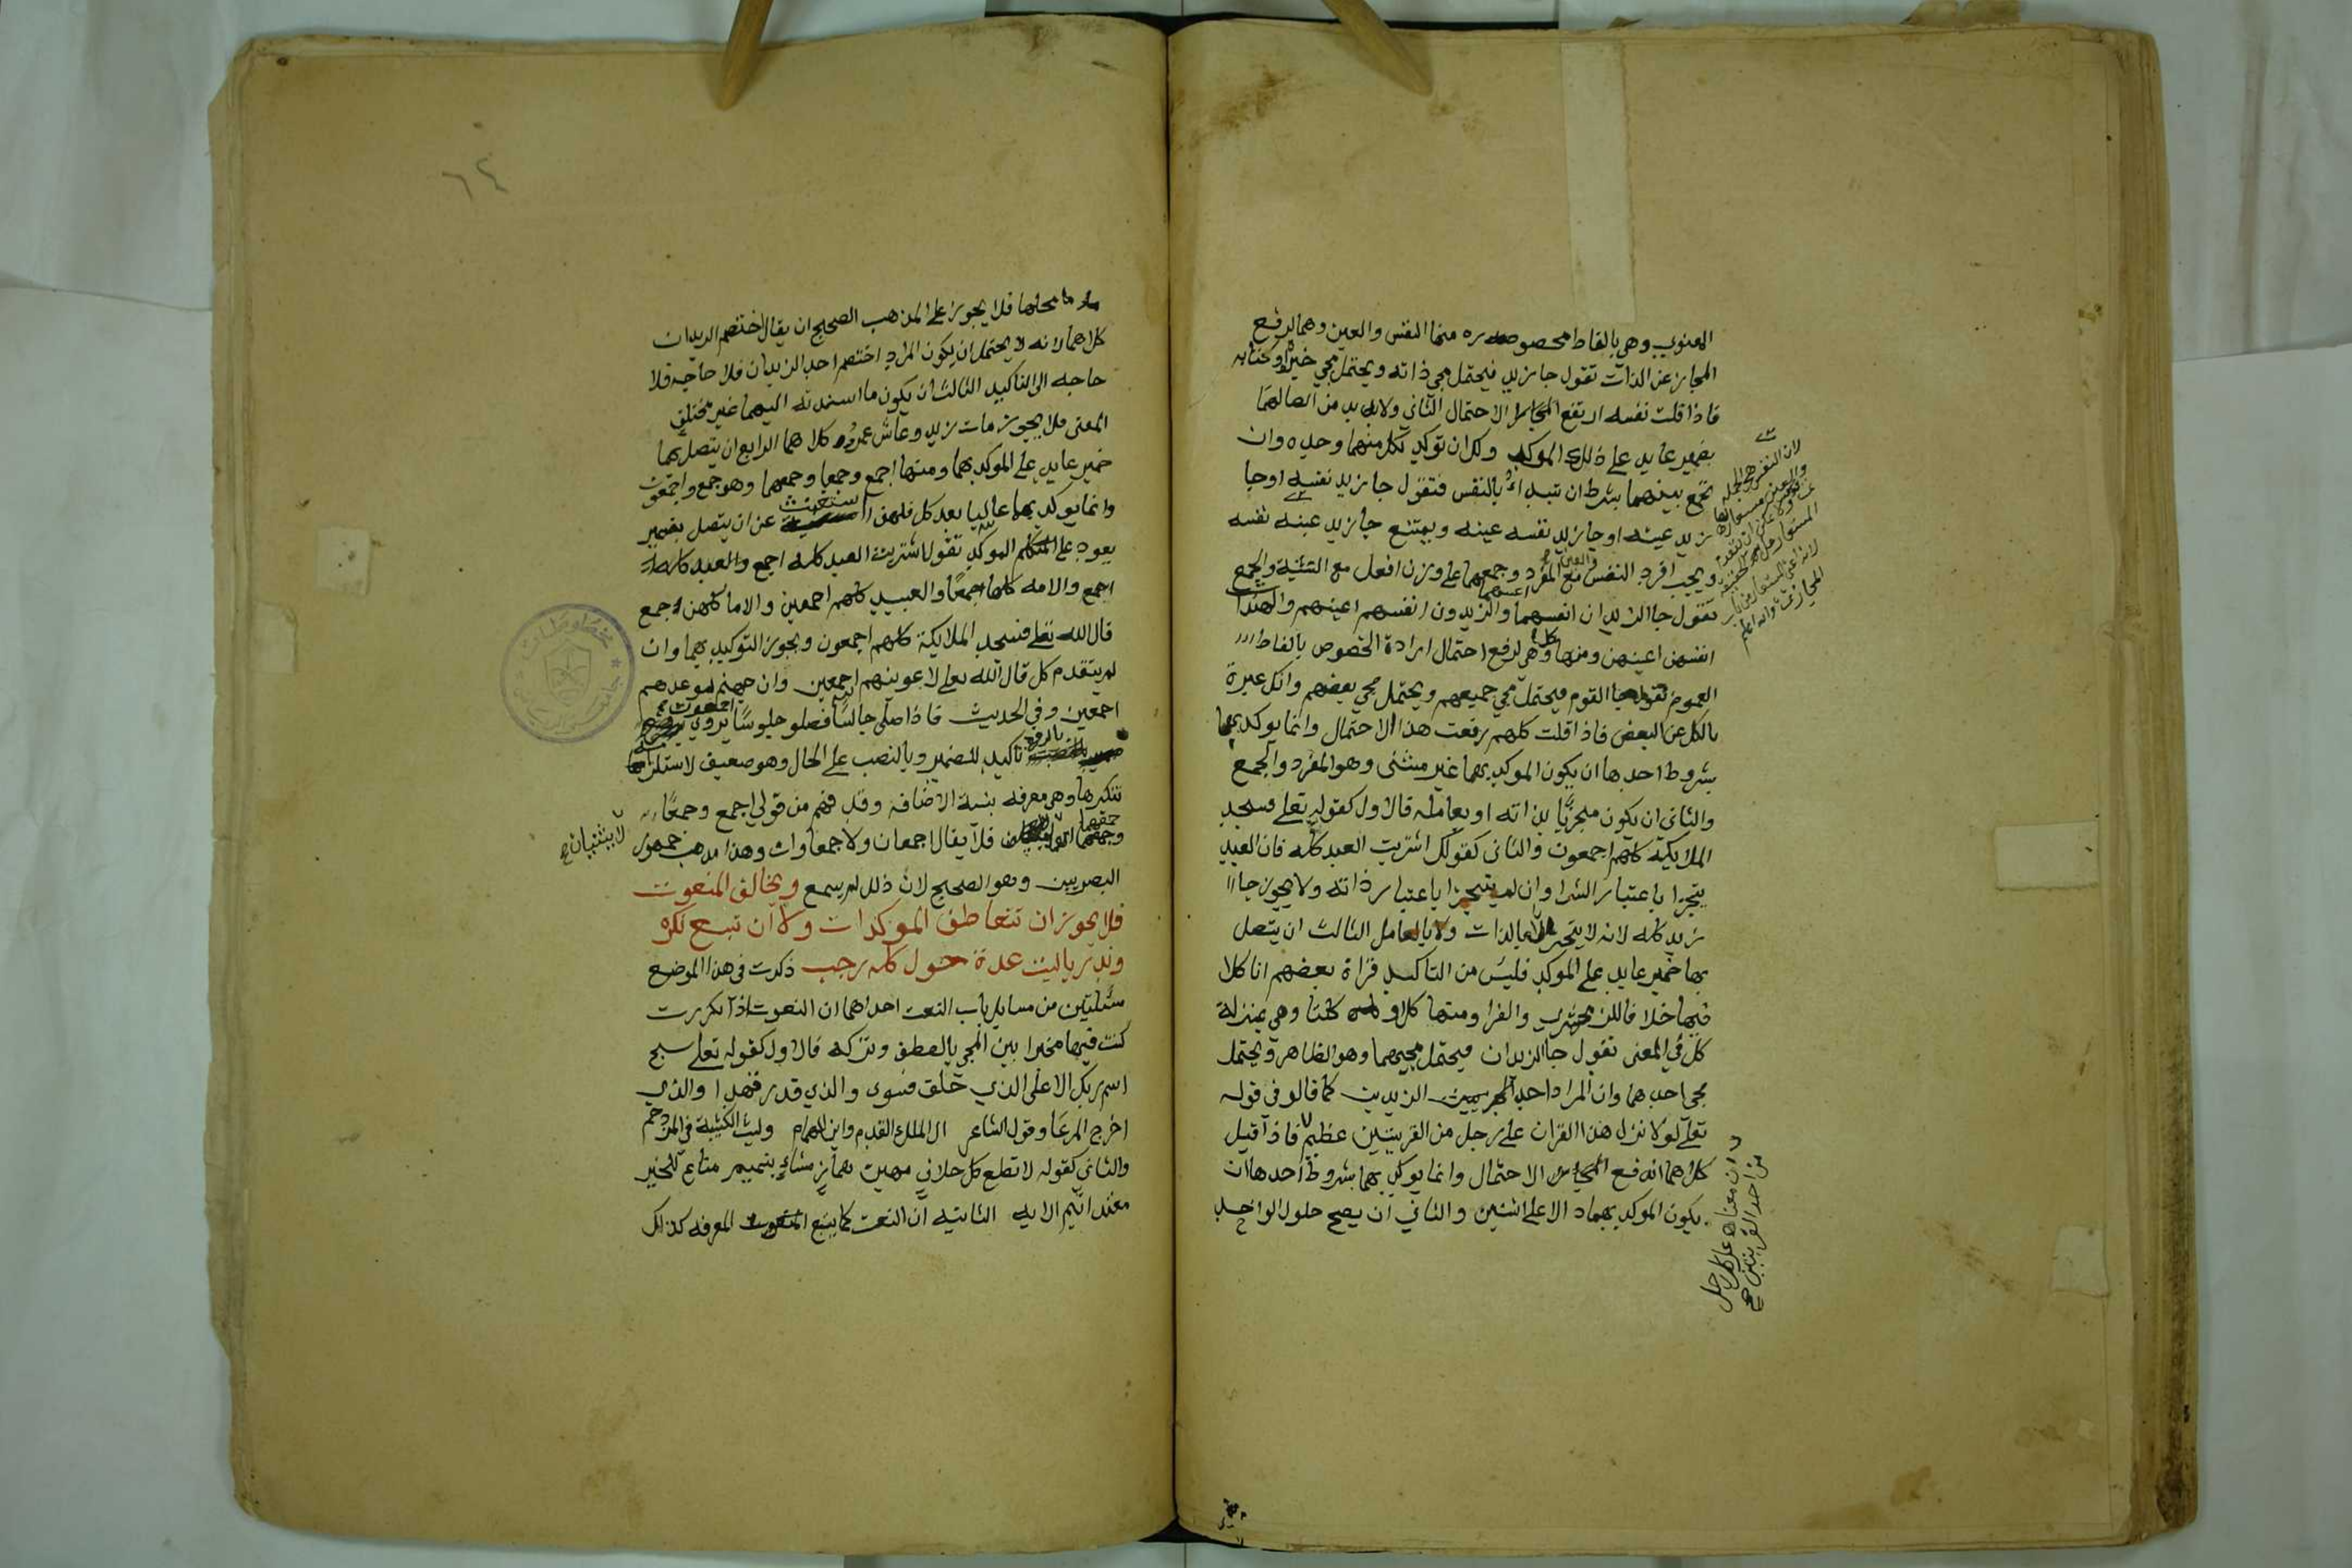 المعنوي وهي بالفاظ محصوصه منها النفس والعين وهما لرفع
المجاز عن الذات تقول جا زيد فيحتمل مجي ذاته ويحتمل مجي خبره او كتابه
فاذا قلت نفسه ارتفع الاحتمال الثاني ولابد من اتصالهما
بضمير عايد على ذلك الموكد ولك ان توكد بكل منهما وحده وان
تجمع بينهما بشرط ان تبدا بالنفس فتقول جا زيد نفسه او جا
زيد عينه او جا زيد نفسه عينه ويمتنع جا زيد عينه نفسه
ويجب افرد النفس والعين مع المفرد وجمعهما على وزن افعل مع التثنية والجمع
تقول جا الزيدان انفسهما اعينهما والزيدون انفسهم اعينهم والهندات
انفسهن اعينهن ومنها كل وهي لرفع احتمال ارادة الخصوص بالفاظ
العموم تقول جا القوم فيحتمل مجي جميعهم ويحتمل مجي بعضهم وانك عبرة
بالكل عن البعض فاذا قلت كلهم رفعت هذا الاحتمال وانما يوكد بها
بشروط احدها ان يكون الموكد بها غير مثنى وهو المفرد والجمع
والثاني ان يكون متجزيا بذاته او بعامله فالاول كقوله تعلى فسجد
الملايكة كلهم اجمعون والثاني كقولك اشتريت العبد كله فان العبد
يتجزا باعتبار الشرا وان لم يتجزا باعتبار ذاته ولا يجوز جا
زيد كله لانه لا يتجزا لا بالذات ولا بالعامل الثالث ان يتصل
بها ضمير عايد على الموكد فليس من التاكيد قراة بعضهم انا كلا
فيها خلافا للزمخشري والفرا ومنها كلا و كلتا وهي بمنزلة
كل في المعنى تقول جا الزيدان فيحتمل مجيهما وهو الظاهر ويحتمل
مجي احدهما وان المراد احد الزيدين كما قالو في قوله
تعلى لولا نزل هذا القران على رجل من القريتين عظيم فاذا قيل
كلاهما اندفع الاحتمال وانما يوكد بهما بشروط احدها ان
يكون الموكد بهما د الا على اثنين والثاني ان يصح حلول الواحد
لان النفس هي الجملة
ان معناه على رجل
من احد القريتين صح
٦٤
محلهما فلا يجوز على المذهب الصحيح ان يقال اختصم الزيدان
كلاهما لانه لا يحتمل ان يكون المراد اختصم احد الزيدان فلا حاجه فلا
حاجه الى التاكيد الثالث ان يكون ما اسندته اليهما غير مختلق
المعنى فلا يجوز مات زيد وعاش عمرو كلاهما الرابع ان يتصل بهما
ضمير عايد على الموكد بهما ومنها اجمع وجمعا وجمعهما وهو جمع واجمعون
وانما يوكد بها غالبا بعد كل فلهذا استغنت عن ان يتصل بضمير
يعود على الموكد تقول اشتريت العبد كله اجمع والعبد كله
اجمع والامه كلها جمعا والعبيد كلهم اجمعين والاما كلهن جمع
قال الله تعلى فسجد الملايكة كلهم اجمعون ويجوز التوكيد بهما وان
لم يتقدم كل قال الله تعلى لاغوينهم اجمعين وان جهنم لموعدهم
اجمعين وفي الحديث فاذا صلى جالسا فصلو جلوسا يروي اجمعون
بالرفع تاكيد للضمير وبالنصب على الحال وهو ضعيف لاستلزامها
تنكيرها وهي معرفه بنية الاضافه وقد فهم من قولي اجمع وجمعا
وجمعهما انهما لا يثنيان صح فلا يقال اجمعان ولا جمعاوان وهذا مذهب جمهور
البصريين وهو الصحيح لان ذلك لم يسمع ويخالف المنعوت
فلا يجوز ان تتعاطف الموكدات ولا ان تتبع نكره
وندر يا ليت عدة حول كله رجب ذكرت في هذا الموضع
مسئلتين من مسايل باب النعت احداهما ان النعوت اذا تكررت
كنت فيها مخيرا بين المجي بالعطف وتركه فالاول كقوله تعلى سبح
اسم ربك الاعلى الذي خلق فسوى والذي قدر فهدا والذي
اخرج المرعا وقول الشاعر الى الملك القدم وابن الهمام وليث الكتيبة في المزدحم
والثاني كقوله لا تطع كل حلاف مهين هماز مشاء بنميم مناع للخير
معتد اثيم الايه الثانيه ان النعت كما يتبع المعرفه كذلك